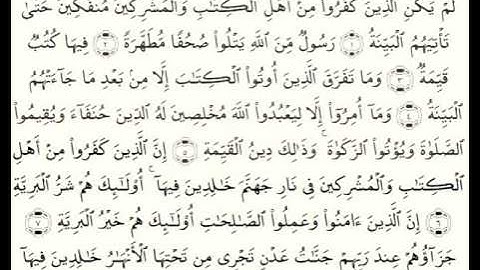 لَمْ يَكُنِ ٱلَّذِينَ كَفَرُوا۟ مِنْ أَهْلِ ٱلْكِتَـٰبِ وَٱلْمُشْرِكِينَ مُنفَكِّينَ حَتَّىٰ
تَأْتِيَهُمُ ٱلْبَيِّنَةُ ١ رَسُولٌ مِّنَ ٱللَّهِ يَتْلُوا۟ صُحُفًا مُّطَهَّرَةً ٢ فِيهَا كُتُبٌ
قَيِّمَةٌ ٣ وَمَا تَفَرَّقَ ٱلَّذِينَ أُوتُوا۟ ٱلْكِتَـٰبَ إِلَّا مِنۢ بَعْدِ مَا جَآءَتْهُمُ
ٱلْبَيِّنَةُ ٤ وَمَآ أُمِرُوٓا۟ إِلَّا لِيَعْبُدُوا۟ ٱللَّهَ مُخْلِصِينَ لَهُ ٱلدِّينَ حُنَفَآءَ وَيُقِيمُوا۟
ٱلصَّلَوٰةَ وَيُؤْتُوا۟ ٱلزَّكَوٰةَ ۚ وَذَٰلِكَ دِينُ ٱلْقَيِّمَةِ ٥ إِنَّ ٱلَّذِينَ كَفَرُوا۟ مِنْ أَهْلِ
ٱلْكِتَـٰبِ وَٱلْمُشْرِكِينَ فِى نَارِ جَهَنَّمَ خَـٰلِدِينَ فِيهَآ ۚ أُو۟لَـٰٓئِكَ هُمْ شَرُّ ٱلْبَرِيَّةِ
٦ إِنَّ ٱلَّذِينَ ءَامَنُوا۟ وَعَمِلُوا۟ ٱلصَّـٰلِحَـٰتِ أُو۟لَـٰٓئِكَ هُمْ خَيْرُ ٱلْبَرِيَّةِ ٧
جَزَآؤُهُمْ عِندَ رَبِّهِمْ جَنَّـٰتُ عَدْنٍ تَجْرِى مِن تَحْتِهَا ٱلْأَنْهَـٰرُ خَـٰلِدِينَ فِيهَآ